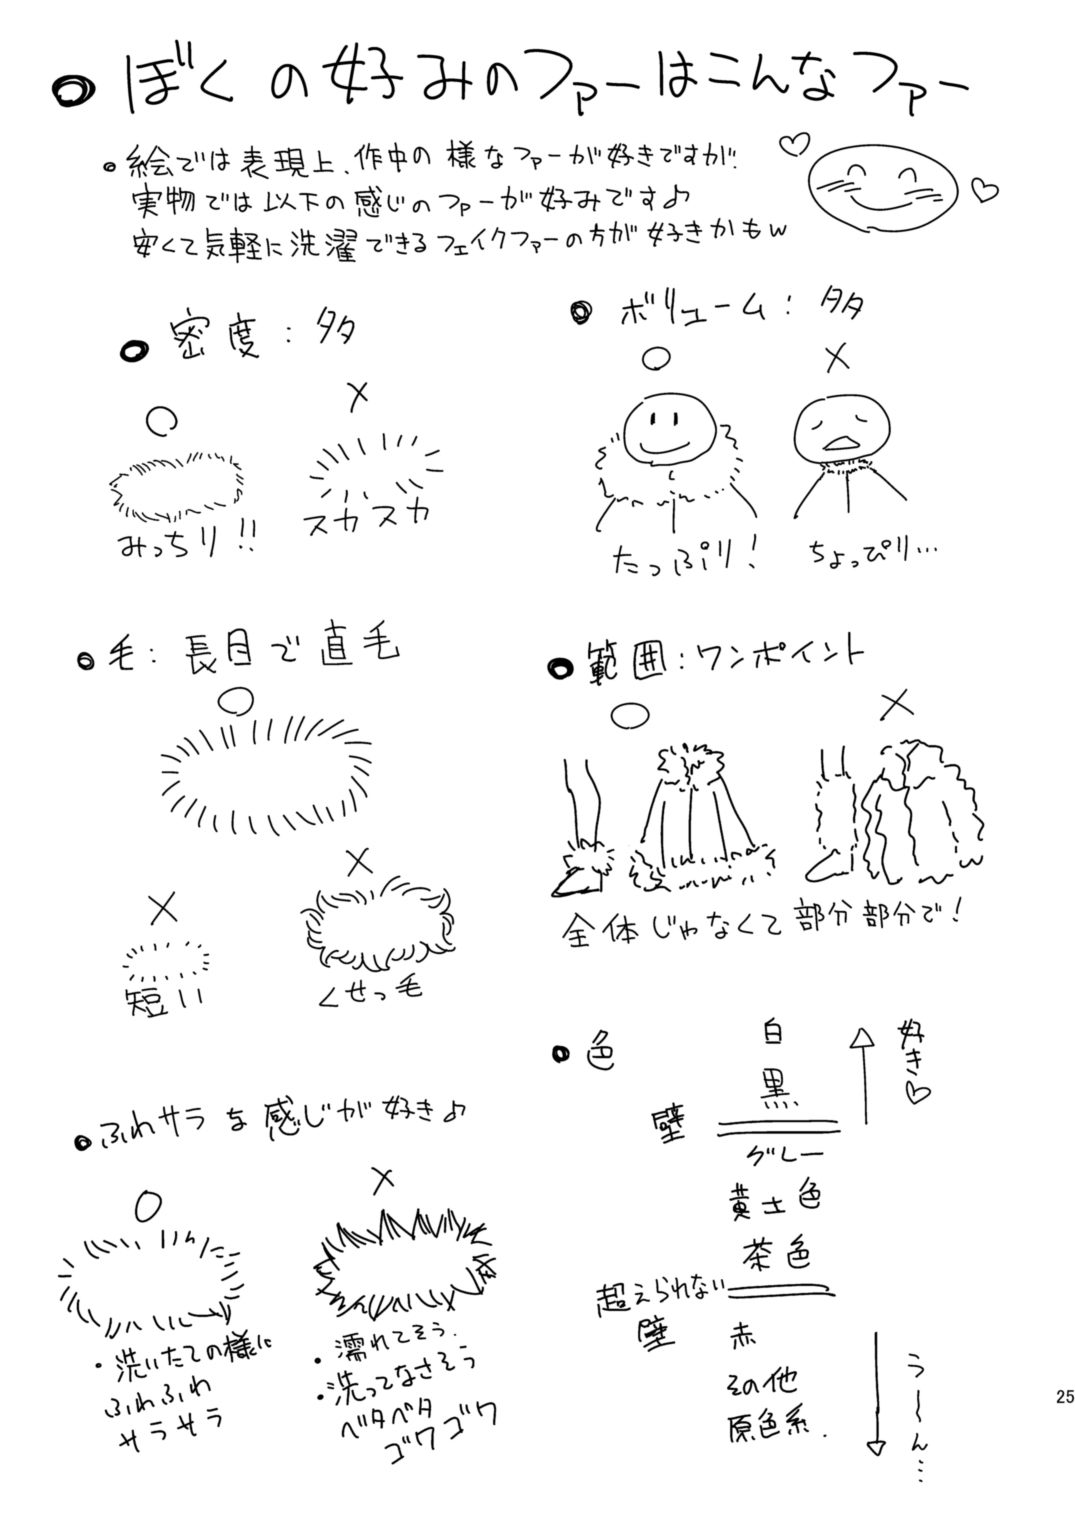 ぼくの好みのファーはこんなファー
絵では表現上、作中の様なファーが好きですが、
実物では以下の感じのファーが好みです♪
安くて気軽に洗濯できるフェイクファーの方が好きかもw
密度：多
○ ×
みっちり!! スカスカ
ボリューム：多
○ ×
たっぷり! ちょっぴり…
毛：長目で直毛
○
× ×
短い くせっ毛
範囲：ワンポイント
○ ×
全体じゃなくて部分部分で!
ふわサラな感じが好き♪
○ ×
・洗いたての様に
ふわふわ
サラサラ
・濡れてそう.
・洗ってなさそう
ベタベタ
ゴワゴワ
色
白
黒
壁
グレー
黄土色
茶色
超えられない
壁
赤
その他
原色系.
好き♡
う〜ん…
25